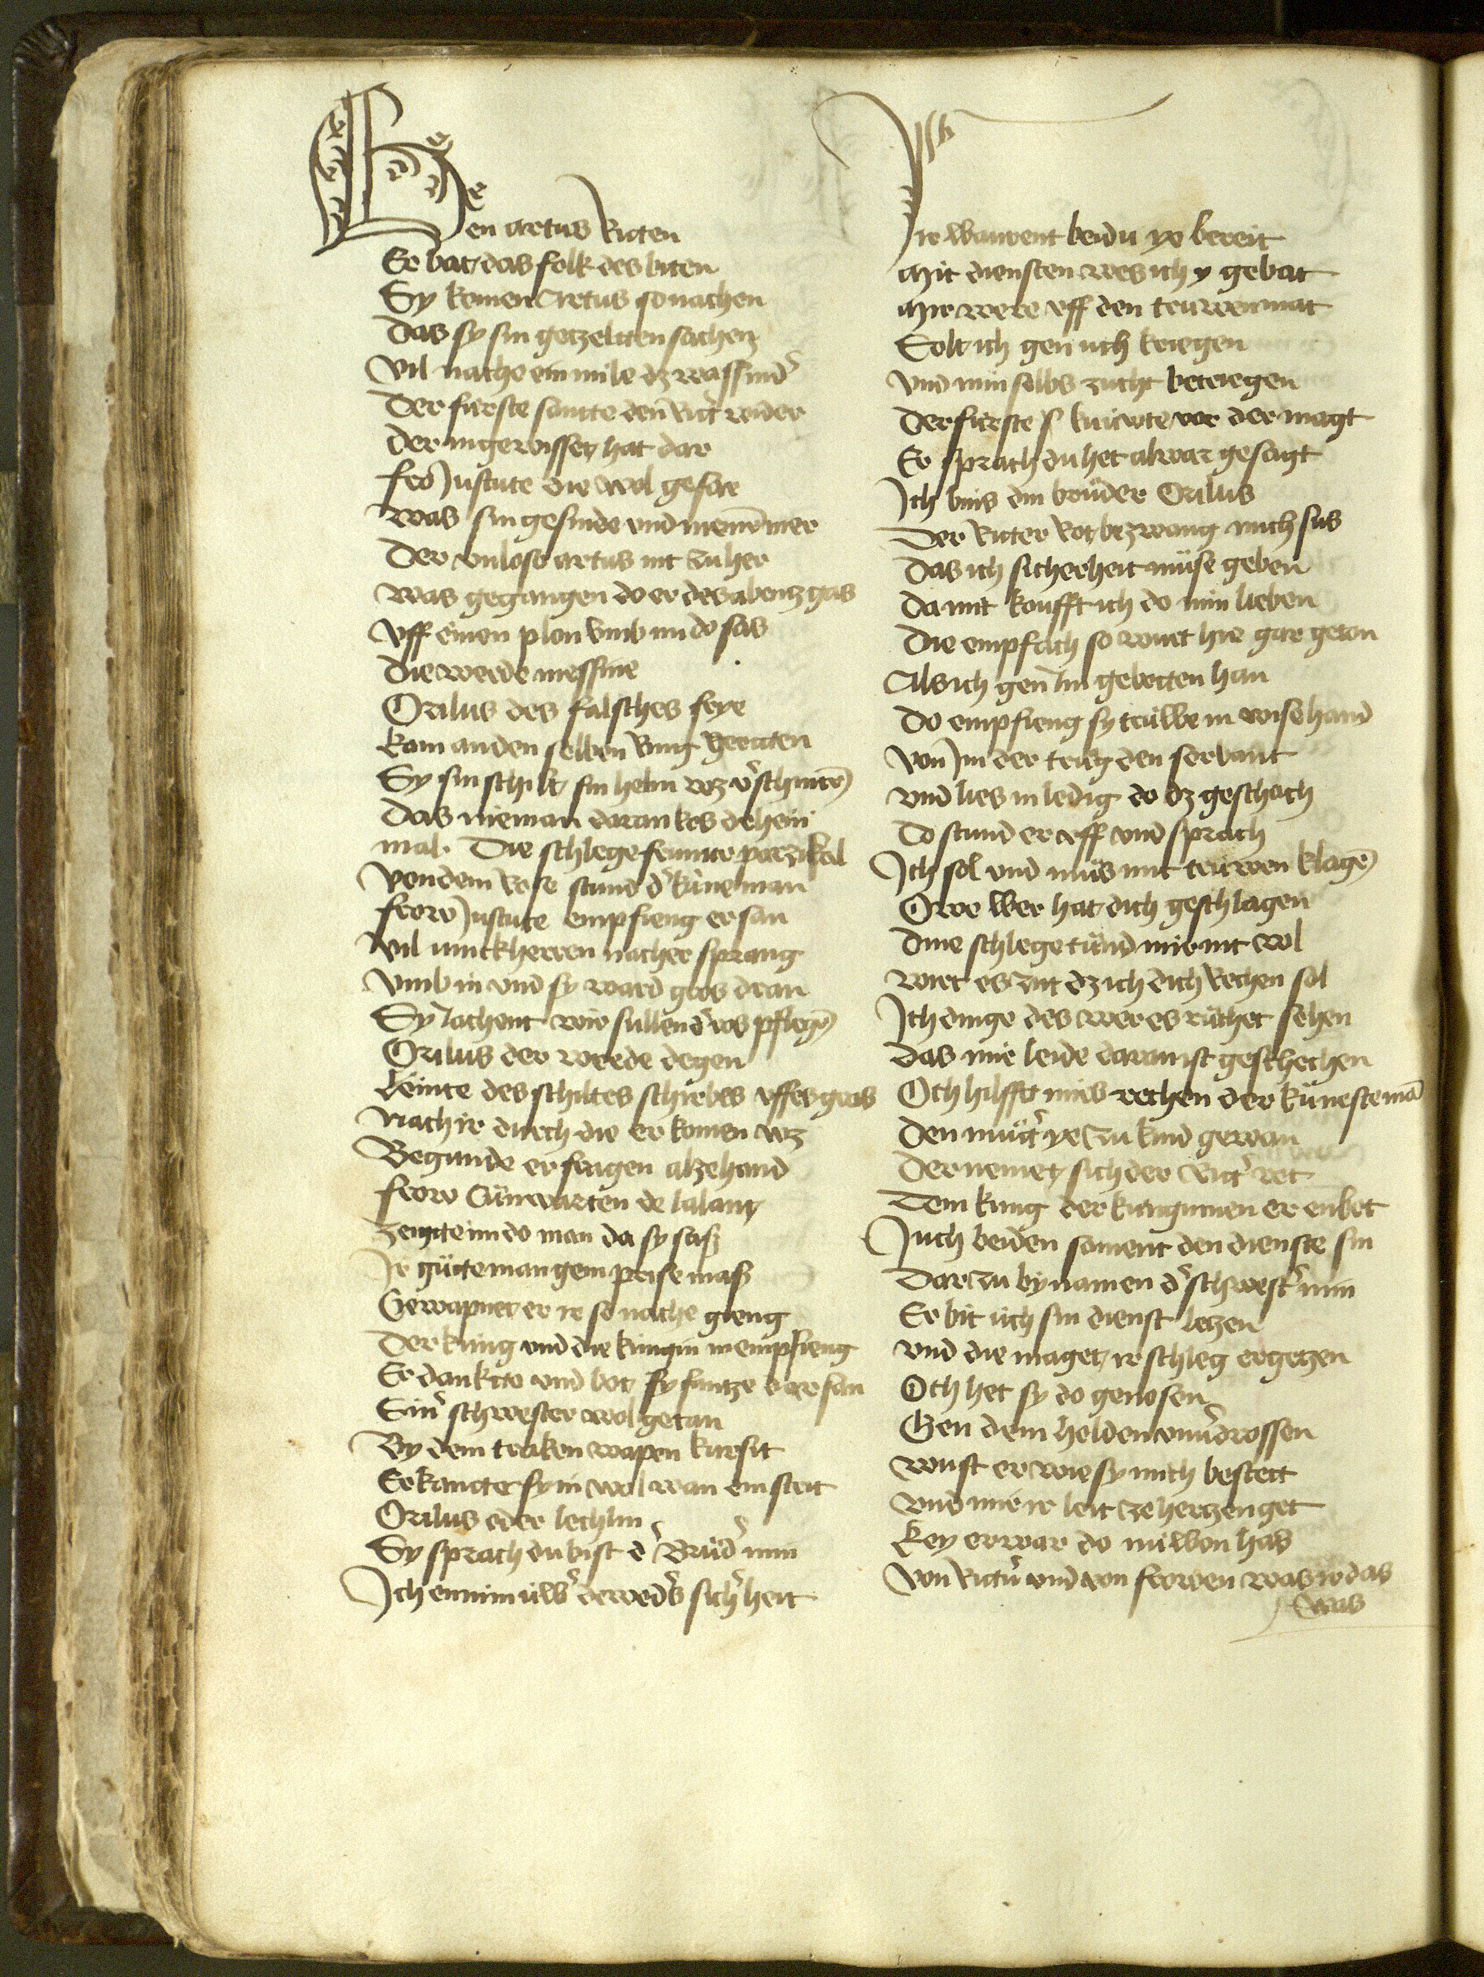 Gen artus Riten
Er bat das folk des biten
Sy komen Artus so nachen
Das sy sin getzeltten sachen
Vil nache ein mile dz wassind᷎
Der fúrste santte den Rit᷎ wider
Der in gewisset hat dar
fro Justute die wol gefar
was sin gesinde vnd niem̄ mer
Der vnlose artus nit zu her
was gegangen do er des abentz gas
Vff einen plon vmb im do sas
Die werde messnie
Orilus des falsches frye
kam an den selben Ring geritten
Sy sin schilt sin helm wz v᷎schnitē
Das nieman daran kos dehein
mal. Die schlege frumte parzifal
Von dem Rose stund d᷎ küne man
frow Justute empfieng er san
Vil iunckherren nacher sprang
Vmb in vnd sy ward gros dran
Sy Jachent wir sullend᷎ ros pflegē
Orilus der werde degen
Leinte des schiltes schirbes vffes gras
Nach ir durch die er komen wz
Begunde er fragen alzehand
frow Cunwarten de lalant
zeigtte im do man da sy sass
Ir gütte man gem prise mass
Gewapnet er ir so nache gieng
Der kúng vnd die kúngin in empfieng
Er dankte vnd bot sy fantze dar san
Sin᷎ schwester wol getan
By dem traken wapen kursit
Erkantte sy in wol wan ein strit
Orilus oder lechlin
Sy sprach du bist d᷎ Brüd᷎ min
Ich en nim úw᷎ dewed᷎s sich᷎heit
Ir warent beidu ye bereit
Mit diensten wes ich y gebat
Mir were vff den trúwen mat
Solt ich gen uch kriegen
Vnd min selbs zucht betriegen
Der fúrste kniewte vor der magt
Er sprach du het al war gesagt
Ich bins din brüder Orilus
Der Ritter Rot bezwang mich sus
Das ich sicherheit müse geben
Da mit koufft ich do min lieben
Die empfach so wirt hie gar geton
Als ich gen Im gebotten han
Do empfieng sy trúwe in wise hand
Von Im der trüg den serbant
vnd lies in ledig do dz geschach
Do stund er vff vnd sprach
Ich sol vnd müs mit trúwen klagē
Owe wer hat dich geschlagen
Dine schlege tünd mir nit wol
wirt es zit dz ich dich Rechen sol
Ich dinge des wer es rüchet sehen
Das mir leide daran ist geschechen
Och hilfft mirs rechen der künestemā
Den müt᷎ ye zu kind gewan
Der nemet sich der Rit᷎ rot
Dem kúng der kúngumen er enbot
Juch beiden sament den dienste sin
Dar zu by namen d᷎ schwest᷎ min
Er bit úch sin dienst letzen
vnd die maget ir schleg ergetzen
Och het sy do genosen
Gen dem helden vnu᷎drossen
wust er wie sy mich bestett
Vnd mir ir leit ze hertzen get
key erwar do núwen has
Von Ritt᷎n vnd von frowen was ir das
was